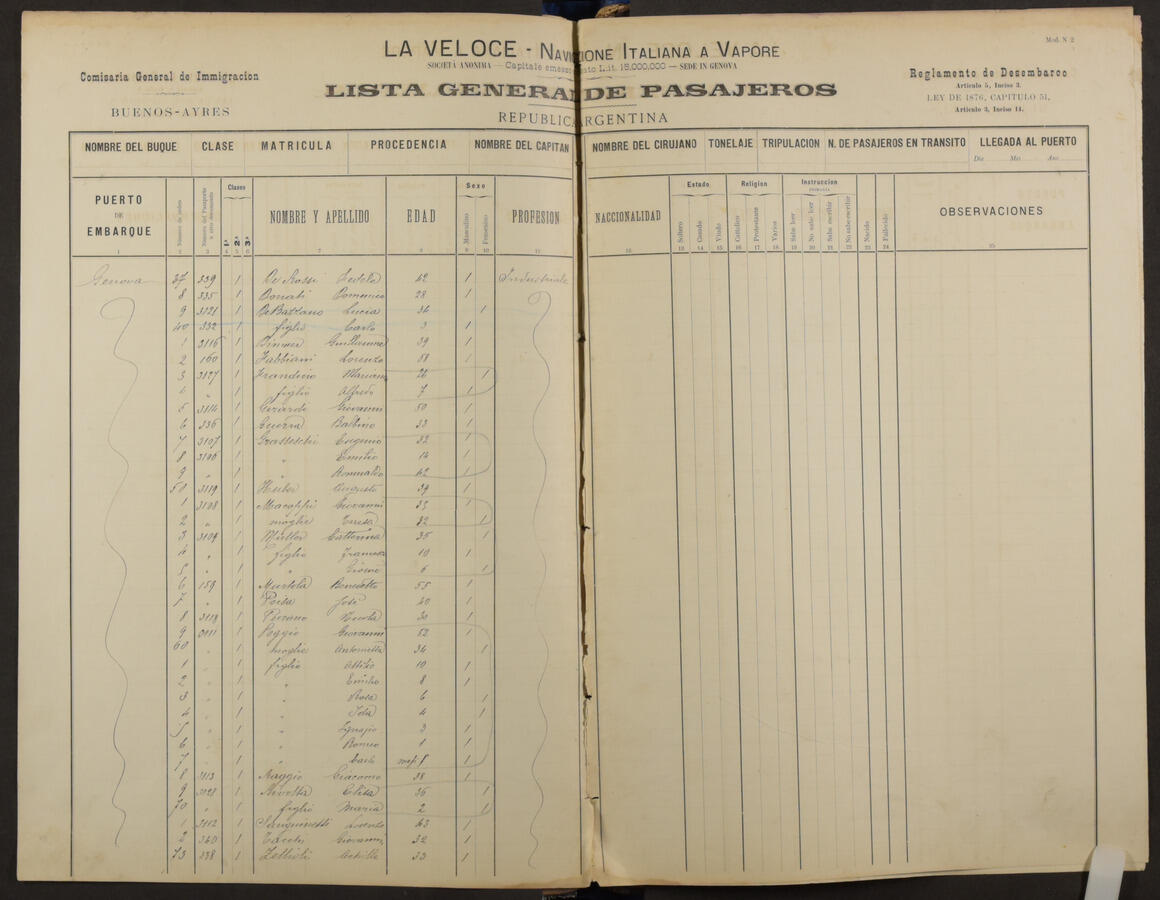 Mod. N 2
LA VELOCE - NAVIGAZIONE ITALIANA A VAPORE
SOCIETÀ ANONIMA — Capitale L.it. 15,000,000 — SEDE IN GENOVA
Comisaria General de Immigracion
BUENOS-AYRES
LISTA GENERAL DE PASAJEROS
REPUBLICA ARGENTINA
Reglamento de Desembarco
Articulo 5, Inciso 3.
LEY DE 1876, CAPITULO 51,
Articulo 3, Inciso 14.
NOMBRE DEL BUQUE CLASE MATRICULA PROCEDENCIA NOMBRE DEL CAPITAN NOMBRE DEL CIRUJANO TONELAJE TRIPULACION N. DE PASAJEROS EN TRANSITO LLEGADA AL PUERTO
Dia Mes Ano
PUERTO DE EMBARQUE Número de orden Clases 1ª 2ª 3ª NOMBRE Y APELLIDO EDAD Sexo Masculino Femenino PROFESION NACCIONALIDAD Estado Soltero Casado Viudo Religion Catolico Protestante Varios Instruccion Sabe leer No sabe leer Sabe escribir No sabe escribir Nacido Fallecido OBSERVACIONES
Genova 37 339 1 De Rossi 42 1 Industriale
8 335 1 Bonati Domenico 28 1
9 3121 1 Lucia 34 1
40 332 1 figlio Carlo 3 1
1 3116 1 39 1
2 160 1 Fabbiani Lorenzo 58 1
3 3127 1 26 1
4 " 1 figlio Alfredo 7 1
5 3114 1 Girardi Giovanni 50 1
6 336 1 Guerra Balbino 33 1
7 3107 1 Eugenio 32 1
8 3106 1 " Emilio 14 1
9 " 1 " Romualdo 42 1
50 3119 1 Huber Augusto 39 1
1 3108 1 Giovanni 1
2 " 1 moglie 32 1
3 3109 1 Müller Catterina 35 1
4 " 1 figlio 10 1
5 " 1 " 6 1
6 159 1 Benedetto 55 1
7 " 1 José 40 1
8 1 Nicola 30 1
9 3111 1 Poggio Giovanni 52 1
60 " 1 moglie Antonietta 34 1
1 " 1 figlio Attilio 10 1
2 " 1 " Emilio 8 1
3 " 1 " Rosa 6 1
4 " 1 " Ida 4 1
5 " 1 " Ignazio 3 1
6 " 1 " Romeo 1 1
7 " 1 " Carlo 1
8 3113 1 Maggio Giacomo 38 1
9 1 Rivolta 36 1
70 " 1 figlia Maria 2 1
1 3112 1 Sanguinetti Lorenzo 43 1
2 340 1 Giovanni 32 1
73 338 1 Achille 33 1